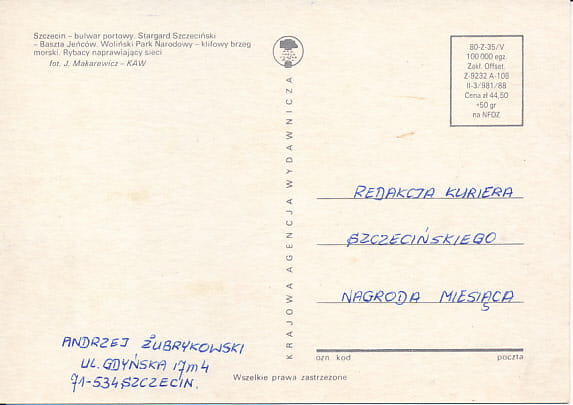 Szczecin – bulwar portowy. Stargard Szczeciński
– Baszta Jeńców. Woliński Park Narodowy – klifowy brzeg
morski. Rybacy naprawiający sieci
fot. J. Makarewicz – KAW
KRAJOWA AGENCJA WYDAWNICZA
80-Z-35/V
100 000 egz.
Zakł. Offset.
Z-9232 A-108
II-3/981/88
Cena zł 44,50
+50 gr
na NFOZ
REDAKCJA KURIERA
SZCZECIŃSKIEGO
NAGRODA MIESIĄCA
ozn. kod poczta
ANDRZEJ ŻUBRYKOWSKI
UL. GDYŃSKA 17m4
71-534 SZCZECIN.
Wszelkie prawa zastrzeżone